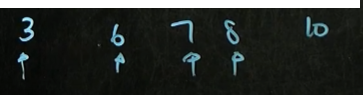 3 6 7 8 10
↑ ↑ ↑ ↑